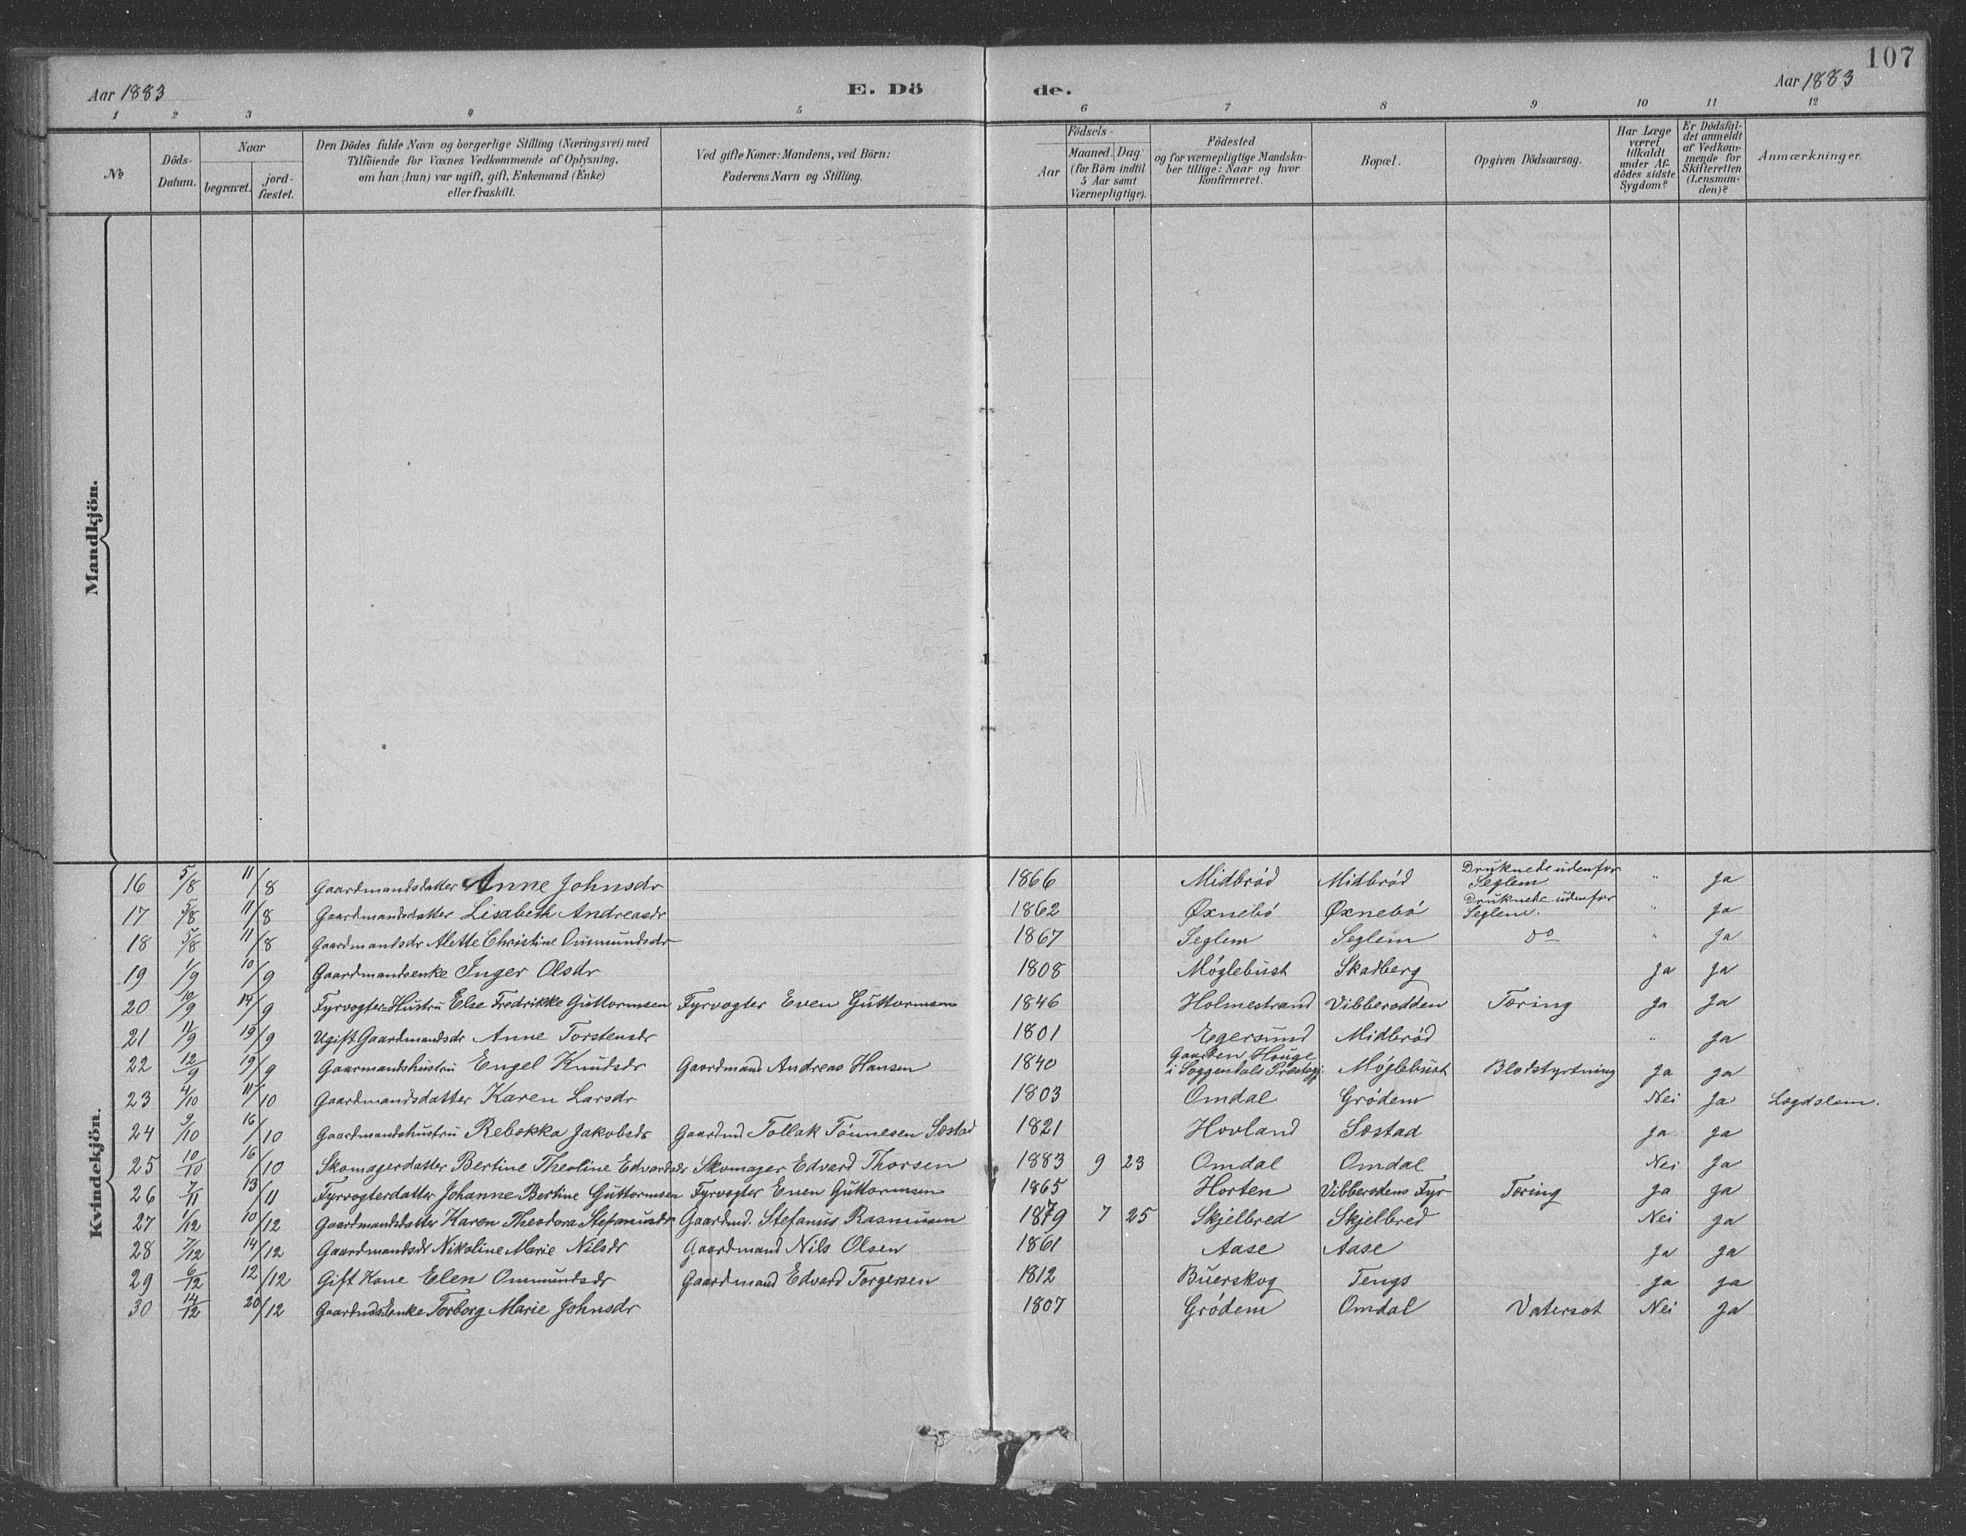 107
Aar 1883 E. Dö de. Aar 1883
1 2 3 4 5 6 7 8 9 10 11 12
No
Döds-Datum.
Naar
begravet.
jord-fæstet.
Den Dödes fulde Navn og borgerlige Stilling (Næringsvei) med
Tilföiende for Voxnes Vedkommende af Oplysning,
om han (hun) var ugift, gift, Enkemand (Enke)
eller fraskilt.
Ved gifte Koner: Mandens, ved Börn:
Faderens Navn og Stilling.
Födsels-
Aar
Maaned. Dag.
(for Börn indtil
5 Aar samt
Værnepligtige).
Födested
og for værnepligtige Mandska-
ber tillige: Naar og hvor
konfirmeret.
Bopæl.
Opgiven Dödsaarsag.
Har Læge
været
tilkaldt
under Af-
dödes sidste
Sygdom?
Er Dödsfal-
det anmeldt
af Vedkom-
mende for
Skifteretten
(Lensman-
den)?
Anmærkninger.
Mandkjön.
Kvindekjön.
16 5/8 11/8 Gaardmandsdatter Anne Johnsdr 1866 Midbrød Midbrød Druknede udenfor Seglem. " Ja
17 5/8 11/8 Gaardmandsdatter Lisabeth Andreasdr 1862 Øxnebø Øxnebø Druknede udenfor Seglem. " Ja
18 5/8 11/8 Gaardmandsdr Alette Christine Ommundsdr 1867 Seglem Seglem do " Ja
19 1/9 10/9 Gaardmandsenke Inger Olsdr 1808 Møglebust Skadberg Ja Ja
20 10/9 14/9 Fyrvogter-Hustru Else Fredrikke Guttormsen Fyrvogter Even Guttormsen 1846 Holmestrand Vibberodden Tæring Ja Ja
21 11/9 19/9 Ugift Gaardmandsdr Anne Torstensdr 1801 Egersund Midbrød " Ja
22 12/9 19/9 Gaarmandshustru Engel Knudsdr Gaardmand Andreas Hansen 1840 Gaarden Houge i Soggendals Præstegj. Møglebust Blodstyrtning Ja Ja
23 4/10 11/10 Gaardmandsdatter Karen Larsdr 1803 Omdal Grødem Nei Ja Lægdslem.
24 9/10 16/10 Gaardmandshustru Rebekka Jakobsdr Gaardmd Tollak Tønnesen Sæstad 1821 Hovland Sæstad Ja Ja
25 10/10 16/10 Skomagerdatter Bertine Theoline Edvardsdr Skomager Edvard Thorsen 1883 9 23 Omdal Omdal Nei Ja
26 7/11 13/11 Fyrvogterdatter Johanne Bertine Guttormsen Fyrvogter Even Guttormsen 1865 Horten Vibberodens Fyr Tæring Ja Ja
27 1/12 10/12 Gaardmandsdatter Karen Theodora Stefanusdr Gaardmd. Stefanus Rasmussen 1879 7 25 Skjelbred Skjelbred Nei Ja
28 7/12 14/12 Gaardmandsdr Nikoline Marie Nilsdr Gaardmand Nils Olsen 1861 Aase Aase Ja Ja
29 6/12 12/12 Gift Kone Elen Ommundsdr Gaardmand Edvard Torgersen 1812 Buerskog Tengs Ja Ja
30 14/12 20/12 Torborg Marie Johnsdr 1807 Grødem Omdal Vatersot Nei Ja